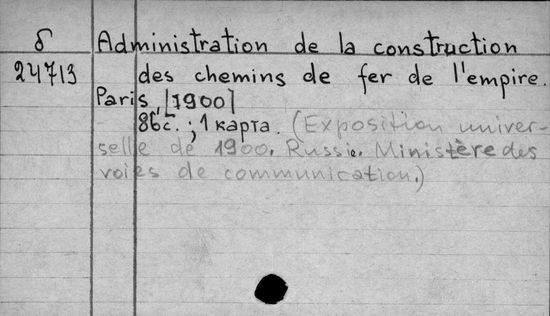 б Administration de la construction
24713 des chemins de fer de l'empire.
Paris, [1900]
86с.; 1 карта. (Exposition univer-
selle de 1900. Russie. Ministère des
voies de communication.)